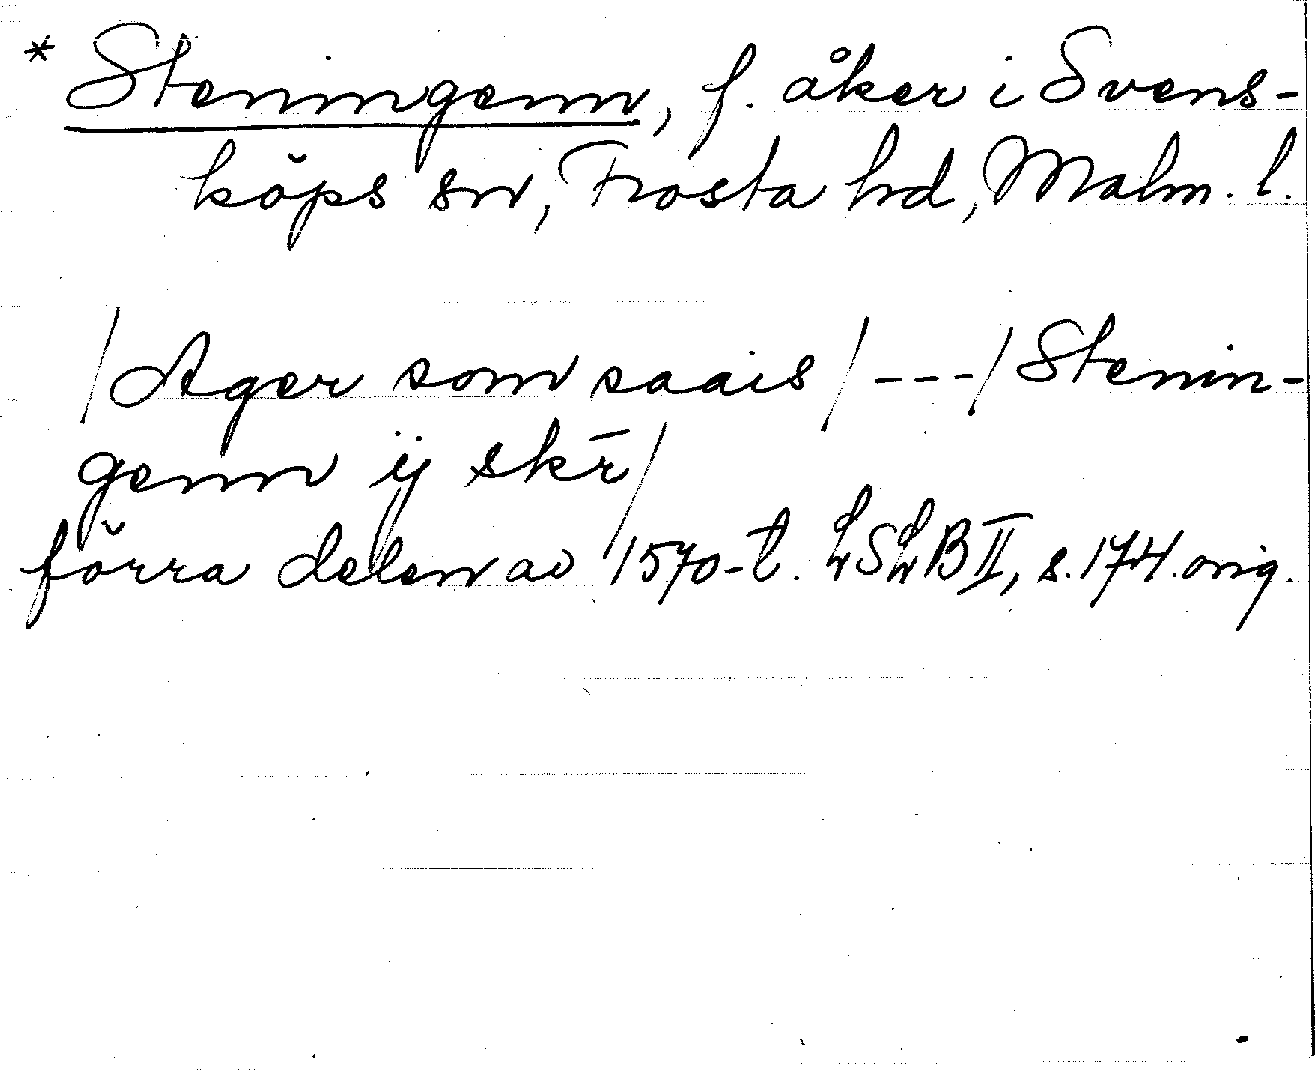 * Steningenn, f. åker i Svens-
köps sn, Frosta hd, Malm. l.
/Ager som saais/---/Stenin-
genn ij skr̄/
förra delen av 1570-t. LSLB II, s. 174. orig.